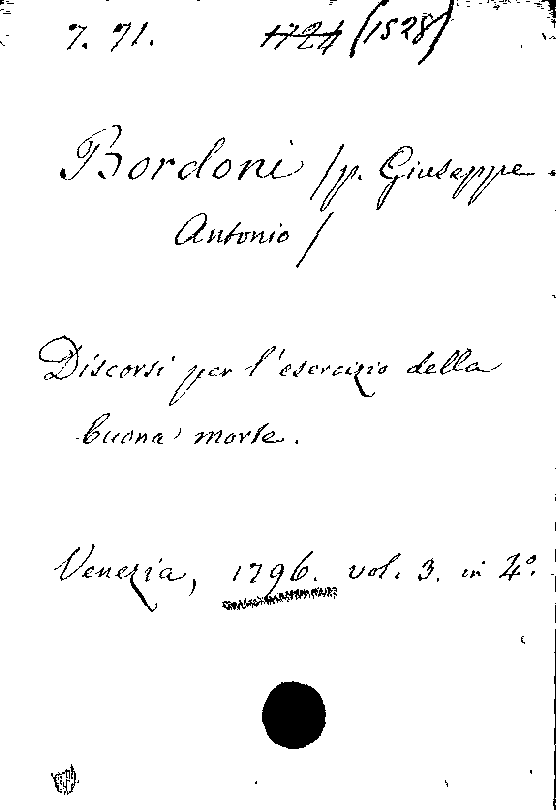 7. 71. 1724 (1528)
Bordoni /p. Giuseppe
Antonio/
Discorsi per l'esercizio della
buona morte.
Venezia, 1796. vol. 3. in 4°.